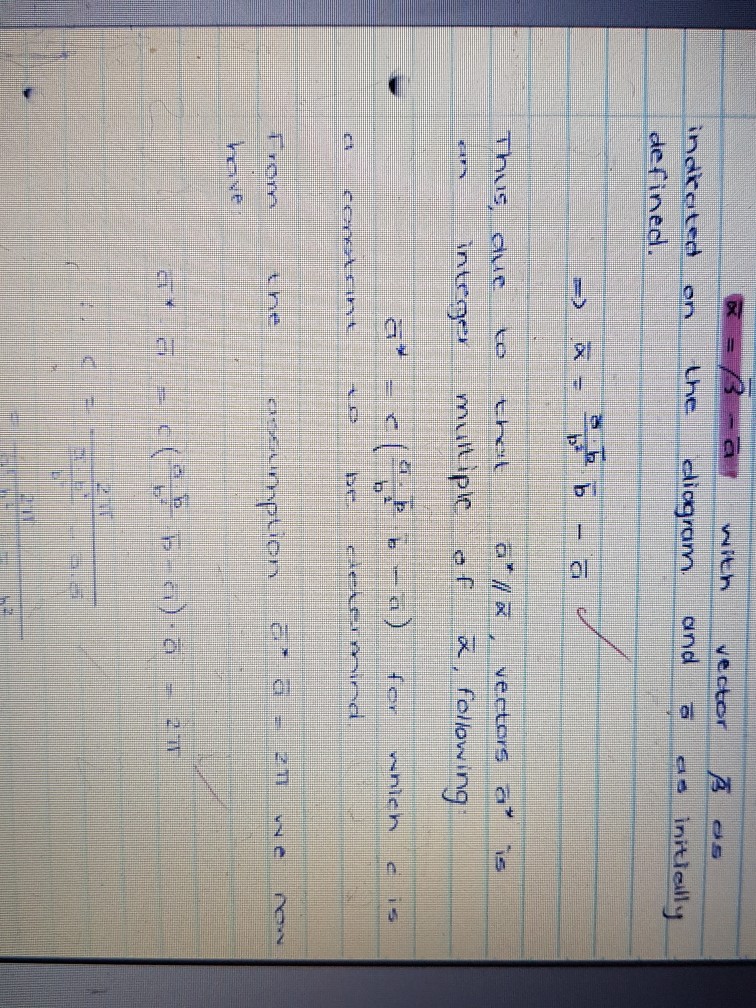 ᾱ = β̄ - ā with vector β̄ as
indicated on the diagram and ā as initially
defined.
=> ᾱ = (ā·b̄)/b² b̄ - ā ✓
Thus, due to that ā* // ᾱ, vectors ā* is
an integer multiple of ᾱ, following:
ā* = c ((ā·b̄)/b² b̄ - ā) for which c is
a constant to be determind
From the assumption ā*·ā = 2π we now
have:
ā*·ā = c ((ā·b̄)/b² b̄ - ā)·ā = 2π
∴ c =
2π